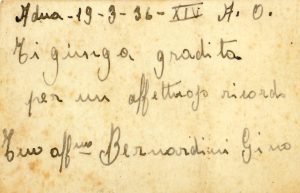 Adua - 19 - 3 - 36 - XIV A. O.
Ti giunga gradita
per un affettuoso ricordo
Tuo aff.mo Bernardini Gino